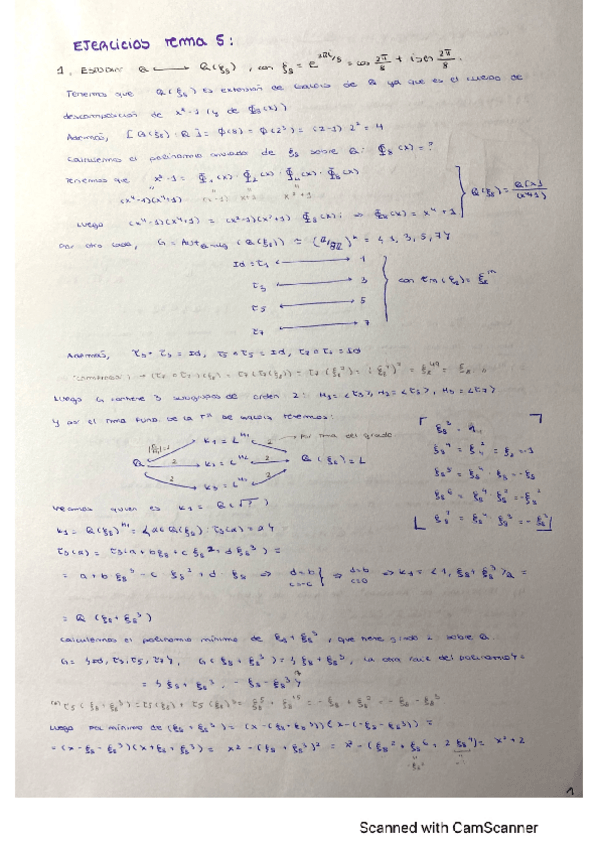 EJERCICIOS TEMA 5:
1. Estudiar Q → Q(ξ₈), con ξ₈ = e^{2πi/8} = cos 2π/8 + i sen 2π/8.
Tenemos que Q(ξ₈) es extensión de Galois de Q ya que es el cuerpo de
descomposición de x⁸-1 (y de Φ₈(x))
Además, [Q(ξ₈) : Q] = φ(8) = φ(2³) = (2-1) 2² = 4
Calculemos el polinomio de ξ₈ sobre Q: Φ₈(x) = ?
Tenemos que x⁸-1 = Φ₁(x) · Φ₂(x) · Φ₄(x) · Φ₈(x)
(x⁴-1)(x⁴+1) (x-1) x+1 x²+1
Luego (x⁴-1)(x⁴+1) = (x²-1)(x²+1) Φ₈(x); ⇒ Φ₈(x) = x⁴+1
Q(ξ₈) = Q[x]/(x⁴+1)
Por otro lado, (Q(ξ₈)) ≃ (Z/8Z)* = {1, 3, 5, 7}
Id = τ₁ ↔ 1
τ₃ ↔ 3
τ₅ ↔ 5
τ₇ ↔ 7
con τm(ξ₈) = ξ₈^m
Además, τ₃∘τ₃ = Id, τ₅∘τ₅ = Id, τ₇∘τ₇ = Id
Luego G contiene 3 subgrupos de orden 2: H₁ = <τ₃>, H₂ = <τ₅>, H₃ = <τ₇>
Y por el Tma Fund. de la Tª de Galois tenemos:
K₁ = L^{H₁} 2 → Por Tma del grado
Q 2 K₂ = L^{H₂} 2 Q(ξ₈) = L
2 K₃ = L^{H₃}
ξ₈⁴ = ξ₈ = -1
ξ₈⁵ = ξ₈⁴ · ξ₈ = -ξ₈
ξ₈⁶ = ξ₈⁴ ξ₈² = -ξ₈²
ξ₈⁷ = ξ₈⁴ ξ₈³ = -ξ₈³
Veamos quien es K₁ = Q(√?)
K₁ = Q(ξ₈)^{H₁} = {a∈Q(ξ₈) : τ₃(a) = a}
τ₃(a) = τ₃(a + bξ₈ + cξ₈² + dξ₈³) =
= a + bξ₈³ - cξ₈² + d·ξ₈ ⇒ d=b ⇒ d=b ⇒ K₁ = <1, ξ₈+ξ₈³>_Q =
c=-c c=0
= Q(ξ₈+ξ₈³)
Calculemos el polinomio mínimo de ξ₈+ξ₈³, que tiene grado 2 sobre Q.
G = {Id, τ₃, τ₅, τ₇}, G(ξ₈+ξ₈³) = {ξ₈+ξ₈³, la otra raiz del polinomio} =
= {ξ₈+ξ₈³, -ξ₈-ξ₈³}
τ₅(ξ₈+ξ₈³) = τ₅(ξ₈) + τ₅(ξ₈)³ = ξ₈⁵ + ξ₈¹⁵ = -ξ₈ + ξ₈⁷ = -ξ₈ - ξ₈³
Luego Pol mínimo de (ξ₈+ξ₈³) = (x-(ξ₈+ξ₈³))(x-(-ξ₈-ξ₈³)) =
= (x-ξ₈-ξ₈³)(x+ξ₈+ξ₈³) = x²-(ξ₈+ξ₈³)² = x²-(ξ₈²+ξ₈⁶+2ξ₈⁴) = x²+2
1
Scanned with CamScanner